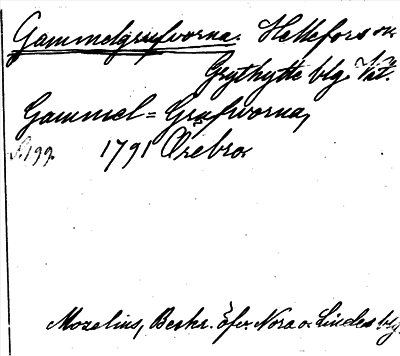 Gammelgrufvorna. Hellefors o.
Grythytte blg. Vst.
Gammel=Grufworna,
S. 199. 1791 Örebro
Mozelius, Beskr. öfv. Nora o. Lindes blg